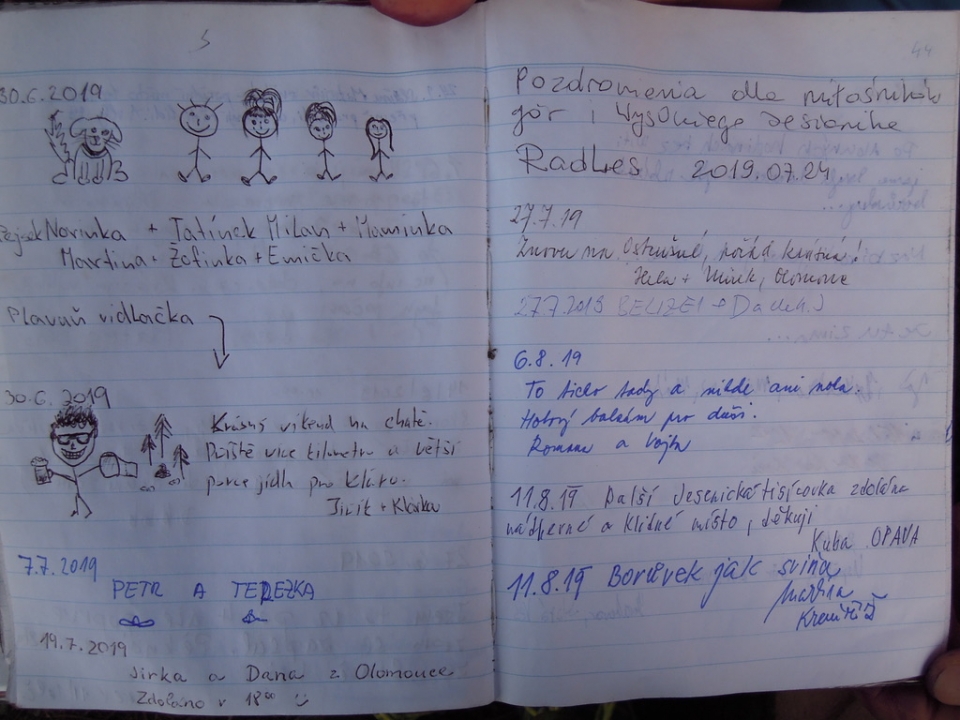 30.6.2019
Pejsek Norinka + Tatínek Milan + Maminka
Martina + Žofinka + Emička
Plavaň vidlačka
30.6.2019
Krásný víkend na chatě.
Příště více kilometrů a větší
porce jídla pro Klárku.
Jirik + Klárka
7.7.2019
PETR A TEREZKA
19.7.2019
Jirka a Dana z Olomouce
Zdoláno v 18⁰⁰
44
Pozdrowienia dla miłośników
gór i Wysokiego Jesionika
Radkes 2019.07.24
27.7.19
Znovu na Ostružné, pořád krásná!
Hela + Mirek, Olomouc
27.7.2019 +
6.8.19
To ticho tady a nikde ani noha.
Hotový balzám pro duši.
Romana a Vojta
11.8.19 Další Jesenická tisícovka zdolána
nádherné a klidné místo, děkuji
Kuba OPAVA
11.8.19 Borůvek jak sviňa
Martina